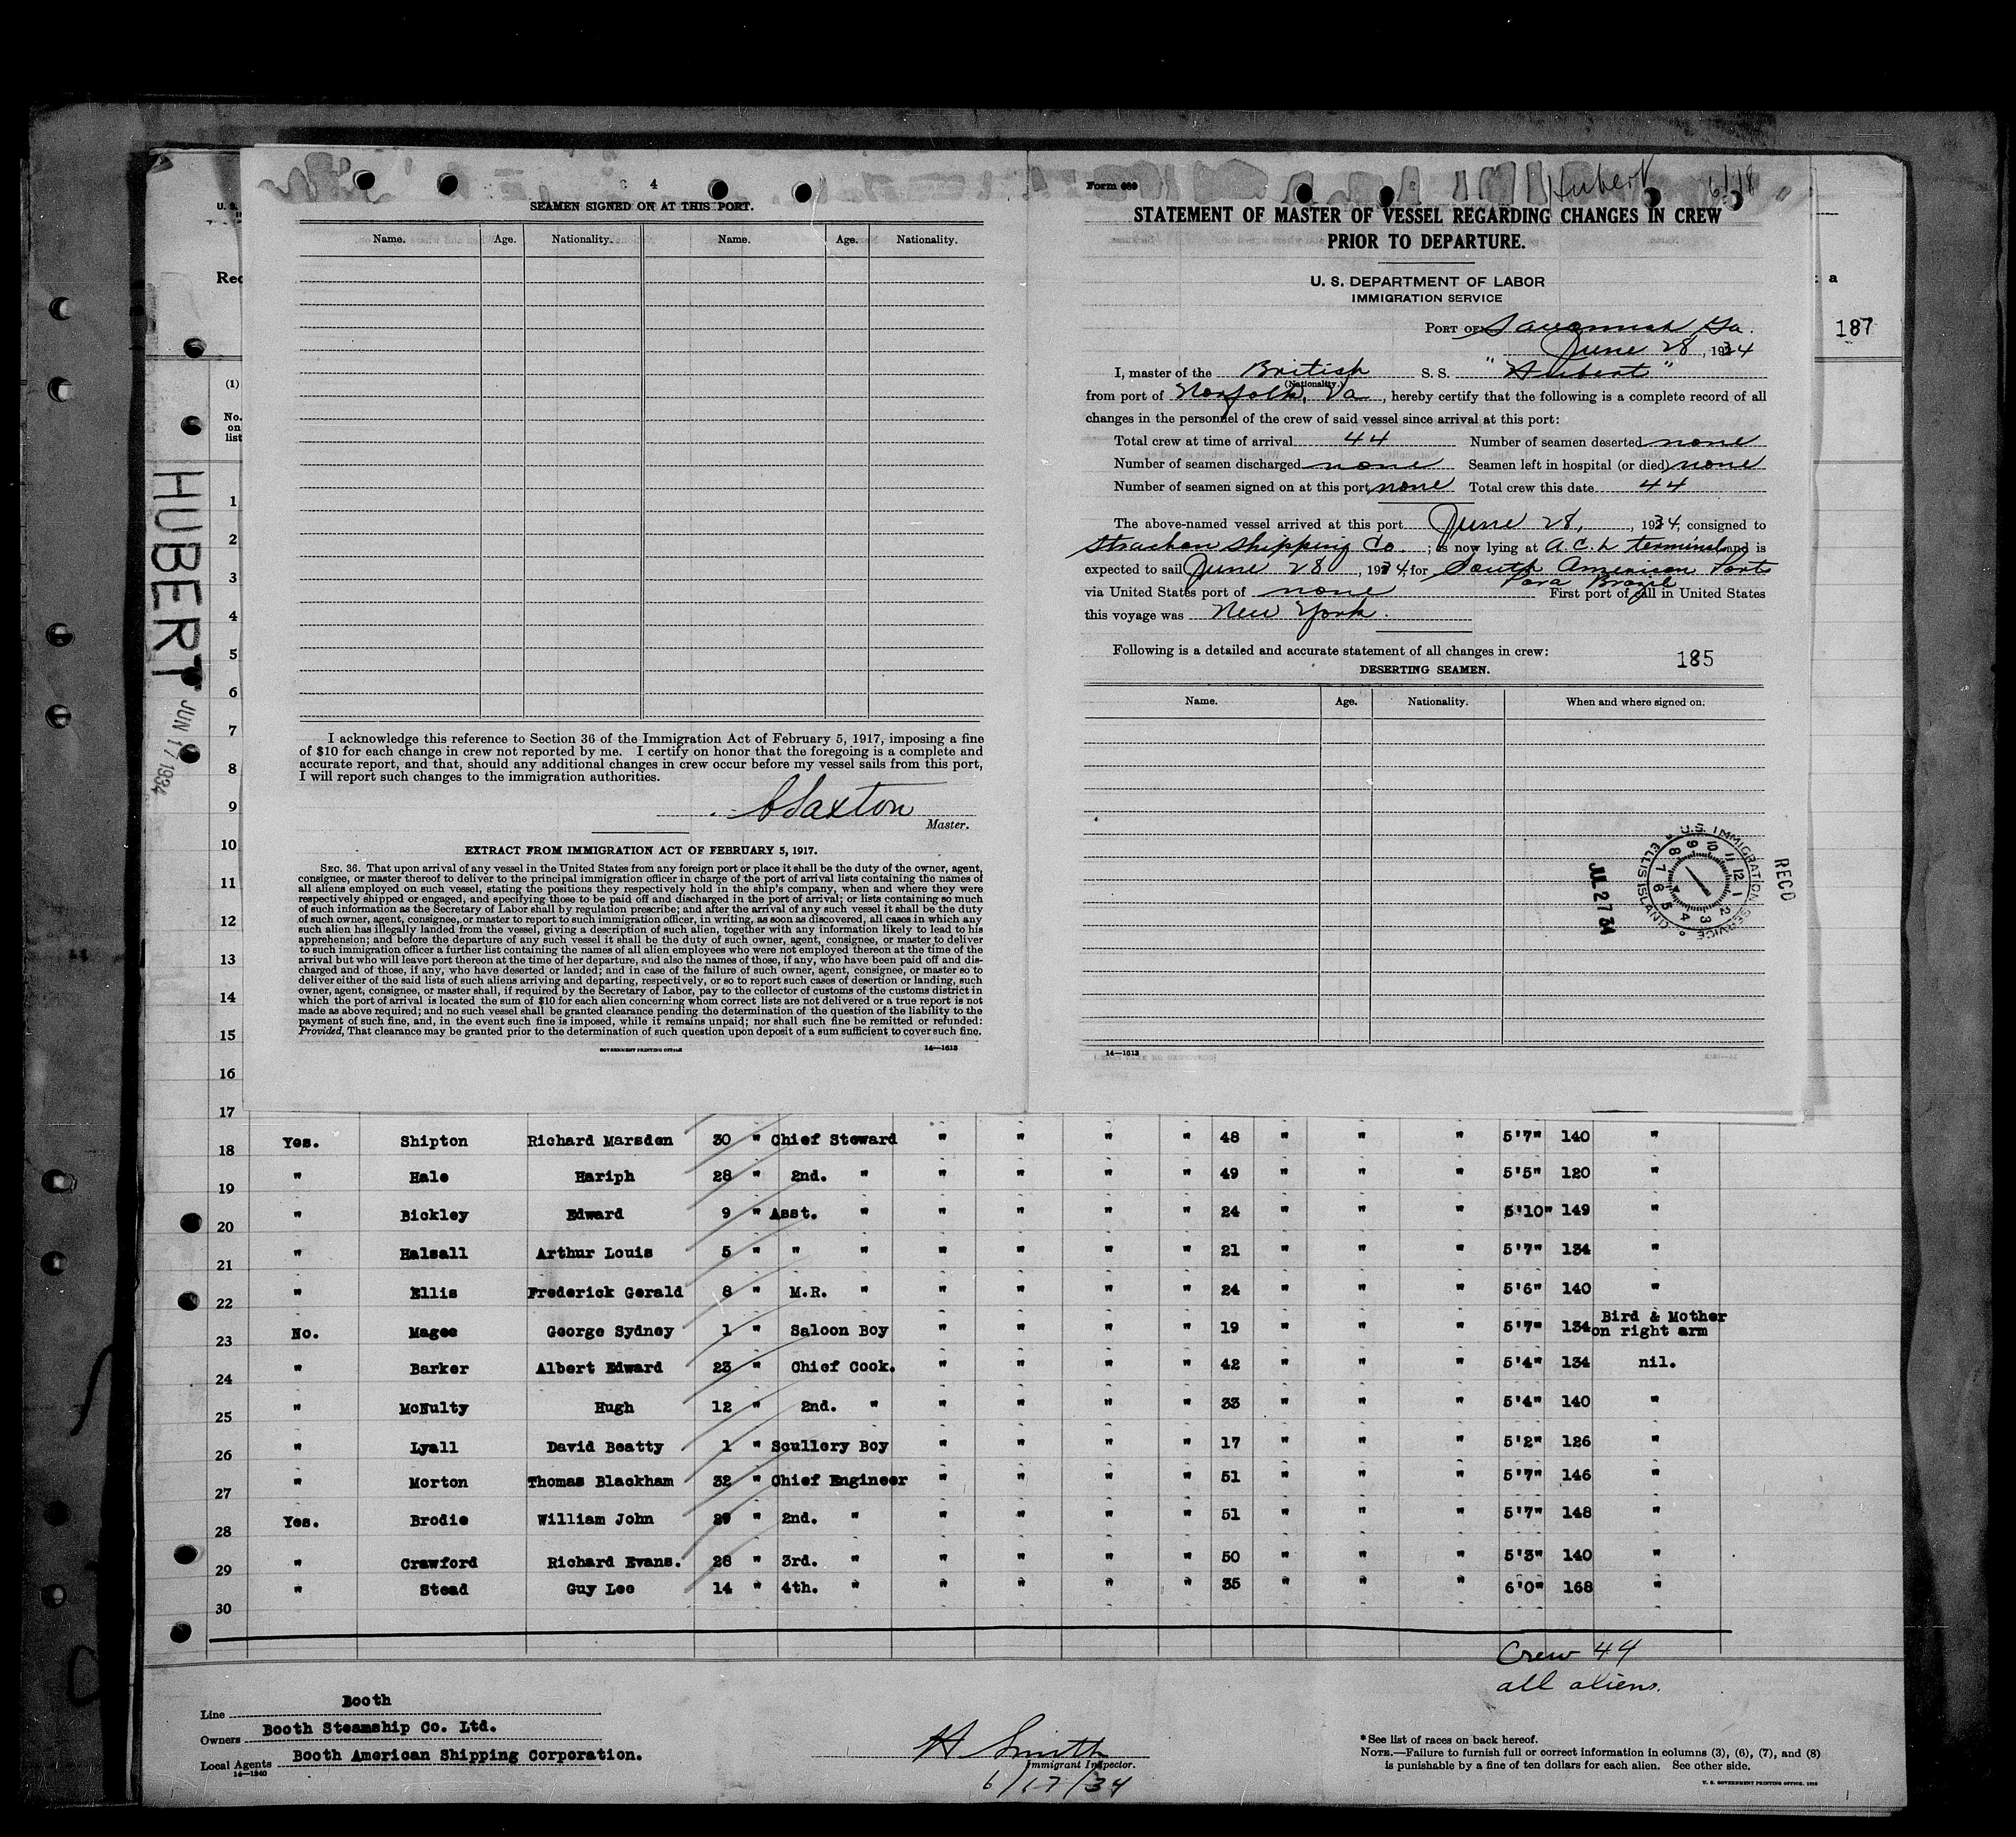 4
SEAMEN SIGNED ON AT THIS PORT.
Name. Age. Nationality. Name. Age. Nationality.
I acknowledge this reference to Section 36 of the Immigration Act of February 5, 1917, imposing a fine
of $10 for each change in crew not reported by me. I certify on honor that the foregoing is a complete and
accurate report, and that, should any additional changes in crew occur before my vessel sails from this port,
I will report such changes to the immigration authorities.
Saxton
Master.
EXTRACT FROM IMMIGRATION ACT OF FEBRUARY 5, 1917.
SEC. 36. That upon arrival of any vessel in the United States from any foreign port or place it shall be the duty of the owner, agent,
consignee, or master thereof to deliver to the principal immigration officer in charge of the port of arrival lists containing the names of
all aliens employed on such vessel, stating the positions they respectively hold in the ship's company, when and where they were
respectively shipped or engaged, and specifying those to be paid off and discharged in the port of arrival; or lists containing so much
of such information as the Secretary of Labor shall by regulation prescribe; and after the arrival of any such vessel it shall be the duty
of such owner, agent, consignee, or master to report to such immigration officer, in writing, as soon as discovered, all cases in which any
such alien has illegally landed from the vessel, giving a description of such alien, together with any information likely to lead to his
apprehension; and before the departure of any such vessel it shall be the duty of such owner, agent, consignee, or master to deliver
to such immigration officer a further list containing the names of all alien employees who were not employed thereon at the time of the
arrival but who will leave port thereon at the time of her departure, and also the names of those, if any, who have been paid off and dis-
charged and of those, if any, who have deserted or landed; and in case of the failure of such owner, agent, consignee, or master so to
deliver either of the said lists of such aliens arriving and departing, respectively, or so to report such cases of desertion or landing, such
owner, agent, consignee, or master shall, if required by the Secretary of Labor, pay to the collector of customs of the customs district in
which the port of arrival is located the sum of $10 for each alien concerning whom correct lists are not delivered or a true report is not
made as above required; and no such vessel shall be granted clearance pending the determination of the question of the liability to the
payment of such fine, and, in the event such fine is imposed, while it remains unpaid; nor shall such fine be remitted or refunded:
Provided, That clearance may be granted prior to the determination of such question upon deposit of a sum sufficient to cover such fine.
GOVERNMENT PRINTING OFFICE 14—1613
Form 689 Hubert 6/18
STATEMENT OF MASTER OF VESSEL REGARDING CHANGES IN CREW
PRIOR TO DEPARTURE.
U. S. DEPARTMENT OF LABOR
IMMIGRATION SERVICE
PORT OF Savannah Ga.
June 28, 1934
I, master of the British S. S. "Hubert"
(Nationality.)
from port of Norfolk, Va, hereby certify that the following is a complete record of all
changes in the personnel of the crew of said vessel since arrival at this port:
Total crew at time of arrival 44 Number of seamen deserted none
Number of seamen discharged none Seamen left in hospital (or died) none
Number of seamen signed on at this port none Total crew this date 44
The above-named vessel arrived at this port June 28, 1934, consigned to
Strachan Shipping Co.; is now lying at A.C.L terminal and is
expected to sail June 28, 1934, for South American Ports
Para Brazil
via United States port of none First port of call in United States
this voyage was New York.
Following is a detailed and accurate statement of all changes in crew:
185
DESERTING SEAMEN.
Name. Age. Nationality. When and where signed on.
U.S. IMMIGRATION SERVICE
ELLIS ISLAND
12 1 2 3 4 5 6 7 8 9 10 11
RECD
JUL 27 34
14—1613
U. S.
Rec
a
187
(1)
No.
on
list
HUBERT
JUN 17 1934
1
2
3
4
5
6
7
8
9
10
11
12
13
14
15
16
17
18 Yes. Shipton Richard Marsden 30 " Chief Steward " " " " 48 " " " 5'7" 140 "
19 " Hale Hariph 28 " 2nd. " " " " " 49 " " " 5'5" 120 "
20 " Bickley Edward 9 " Asst. " " " " " 24 " " " 5'10" 149 "
21 " Halsall Arthur Louis 5 " " " " " " " 21 " " " 5'7" 134 "
22 " Ellis Frederick Gerald 8 " M.R. " " " " " 24 " " " 5'6" 140 "
23 No. Magee George Sydney 1 " Saloon Boy " " " " 19 " " " 5'7" 134 Bird & Mother
on right arm
24 " Barker Albert Edward 23 " Chief Cook. " " " " 42 " " " 5'4" 134 nil.
25 " McNulty Hugh 12 " 2nd. " " " " " 33 " " " 5'4" 140 "
26 " Lyall David Beatty 1 " Scullery Boy " " " " 17 " " " 5'2" 126 "
27 " Morton Thomas Blackham 32 " Chief Engineer " " " " 51 " " " 5'7" 146 "
28 Yes. Brodie William John 29 " 2nd. " " " " " 51 " " " 5'7" 148 "
29 " Crawford Richard Evans. 28 " 3rd. " " " " " 50 " " " 5'3" 140 "
30 " Stead Guy Lee 14 " 4th. " " " " " 35 " " " 6'0" 168 "
Crew 44
all aliens.
Line Booth
Owners Booth Steamship Co. Ltd.
Local Agents Booth American Shipping Corporation.
14—1240
H Smith
Immigrant Inspector.
6/17/34
*See list of races on back hereof.
NOTE.—Failure to furnish full or correct information in columns (3), (6), (7), and (8)
is punishable by a fine of ten dollars for each alien. See other side.
U. S. GOVERNMENT PRINTING OFFICE